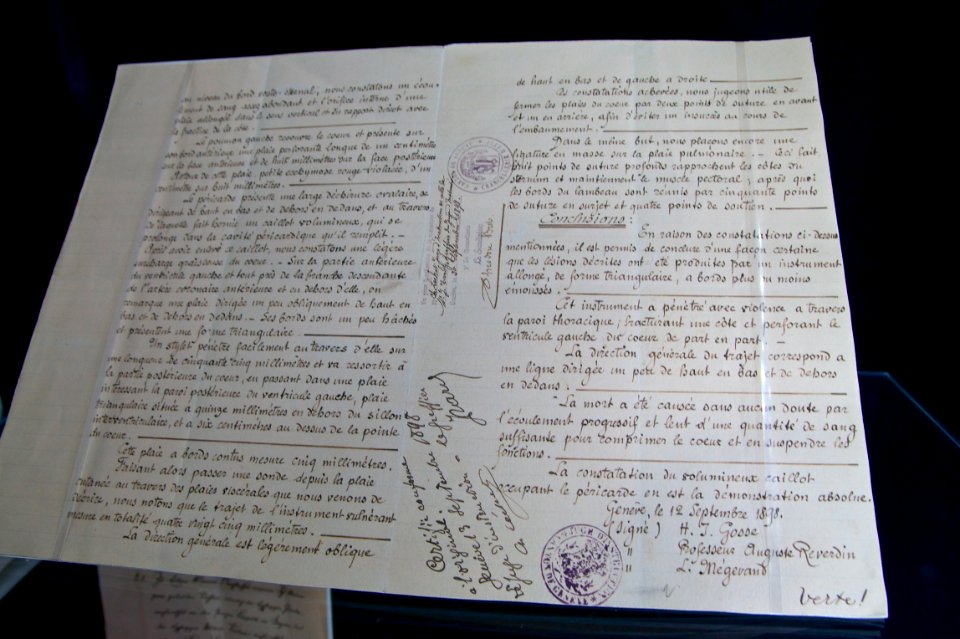 au niveau du bord costo-sternal, nous constatons un écou-
lement de sang assez abondant et l'orifice interne d'une
plaie allongée dans le sens vertical et en rapport direct avec
la fracture de la côte.
Le poumon gauche recouvre le coeur et présente sur
son bord antérieur une plaie perforante longue de un centimètre
sur la face antérieure et de huit millimètres sur la face postérieure
Autour de cette plaie, petite ecchymose rouge-violacée, d'un
centimètre sur huit millimètres.
Le péricarde présente une large déchirure ovalaire, se
dirigeant de haut en bas et de dehors en dedans, et au travers
de laquelle fait hernie un caillot volumineux, qui se
prolonge dans la cavité péricardique qu'il remplit. —
Après avoir enlevé ce caillot, nous constatons une légère
surcharge graisseuse du coeur. — Sur la partie antérieure
du ventricule gauche et tout près de la branche descendante
de l'artère coronaire antérieure et en dehors d'elle, on
remarque une plaie dirigée un peu obliquement de haut en
bas et de dehors en dedans — Ses bords sont un peu hâchés
et présentent une forme triangulaire.
Un stylet pénètre facilement au travers d'elle sur
une longueur de cinquante cinq millimètres et va ressortir à
la partie postérieure du coeur, en passant dans une plaie
intéressant la paroi postérieure du ventricule gauche, plaie
triangulaire située à quinze millimètres en dehors du sillon
interventriculaire, et à six centimètres au dessus de la pointe
du coeur.
Cette plaie a bords contus mesure cinq millimètres.
Faisant alors passer une sonde depuis la plaie
cutanée au travers des plaies viscérales que nous venons de
décrire, nous notons que le trajet de l'instrument vulnérant
mesure en totalité quatre vingt cinq millimètres.
La direction générale est légèrement oblique
Certifié conforme
à l'original.
Genève le 13 Septembre 1898
Le Greffier
de haut en bas et de gauche à droite
Ces constatations achevées, nous jugeons utile de
fermer les plaies du coeur par deux points de suture en avant
et un en arrière, afin d'éviter un insuccès au cours de
l'embaumement.
Dans le même but, nous plaçons encore une
ligature en masse sur la plaie pulmonaire. — Ceci fait,
huit points de suture profonds rapprochent les côtes du
sternum et maintiennent le muscle pectoral; après quoi
les bords du lambeau sont réunis par cinquante points
de suture en surjet et quatre points de soutien.
Conclusions:
En raison des constatations ci-dessus
mentionnées, il est permis de conclure d'une façon certaine
que les lésions décrites ont été produites par un instrument
allongé, de forme triangulaire, à bords plus ou moins
émoussés.
Cet instrument a pénétré avec violence à travers
la paroi thoracique, fracturant une côte et perforant le
ventricule gauche du coeur de part en part. —
La direction générale du trajet correspond à
une ligne dirigée un peu de haut en bas et de dehors
en dedans.
La mort a été causée sans aucun doute par
l'écoulement progressif et lent d'une quantité de sang
suffisante pour comprimer le coeur et en suspendre les
fonctions.
La constatation du volumineux caillot
occupant le péricarde en est la démonstration absolue.
Genève, le 12 Septembre 1898.
(signé) H. J. Gosse
" Professeur Auguste Reverdin
" L. Mégevand
Verte!